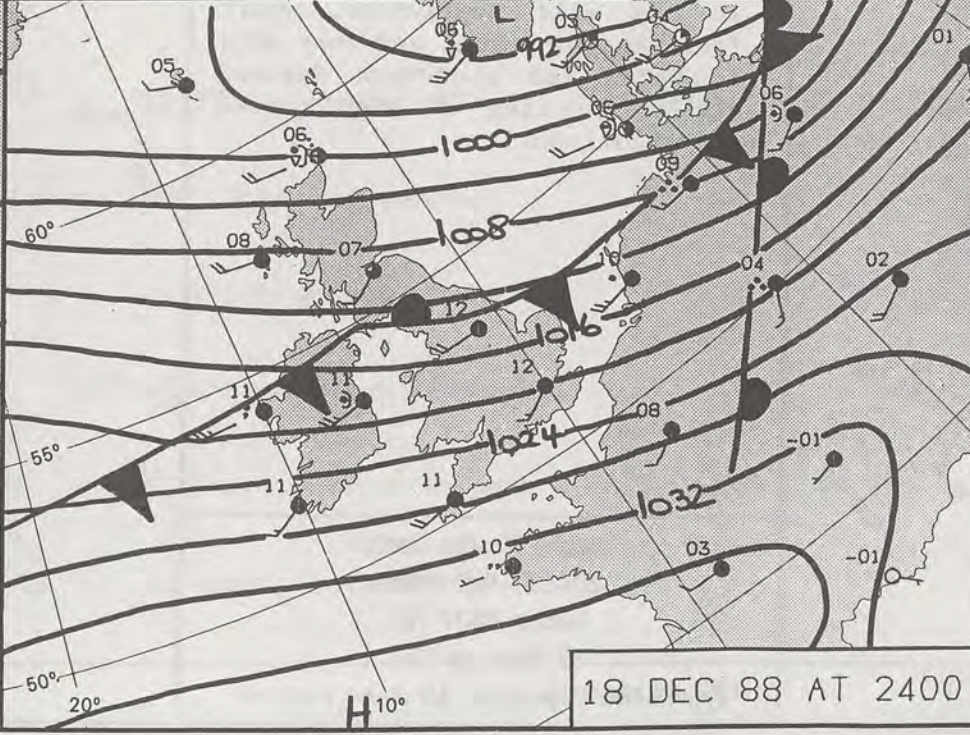 L
992
03
04
06
05
01
06
06
05
1000
09
60°
08
07
1008
10
04
02
12
1016
12
11
11
08
1024
-01
55°
11
11
1032
10
03
-01
50°
20°
H
10°
18 DEC 88 AT 2400